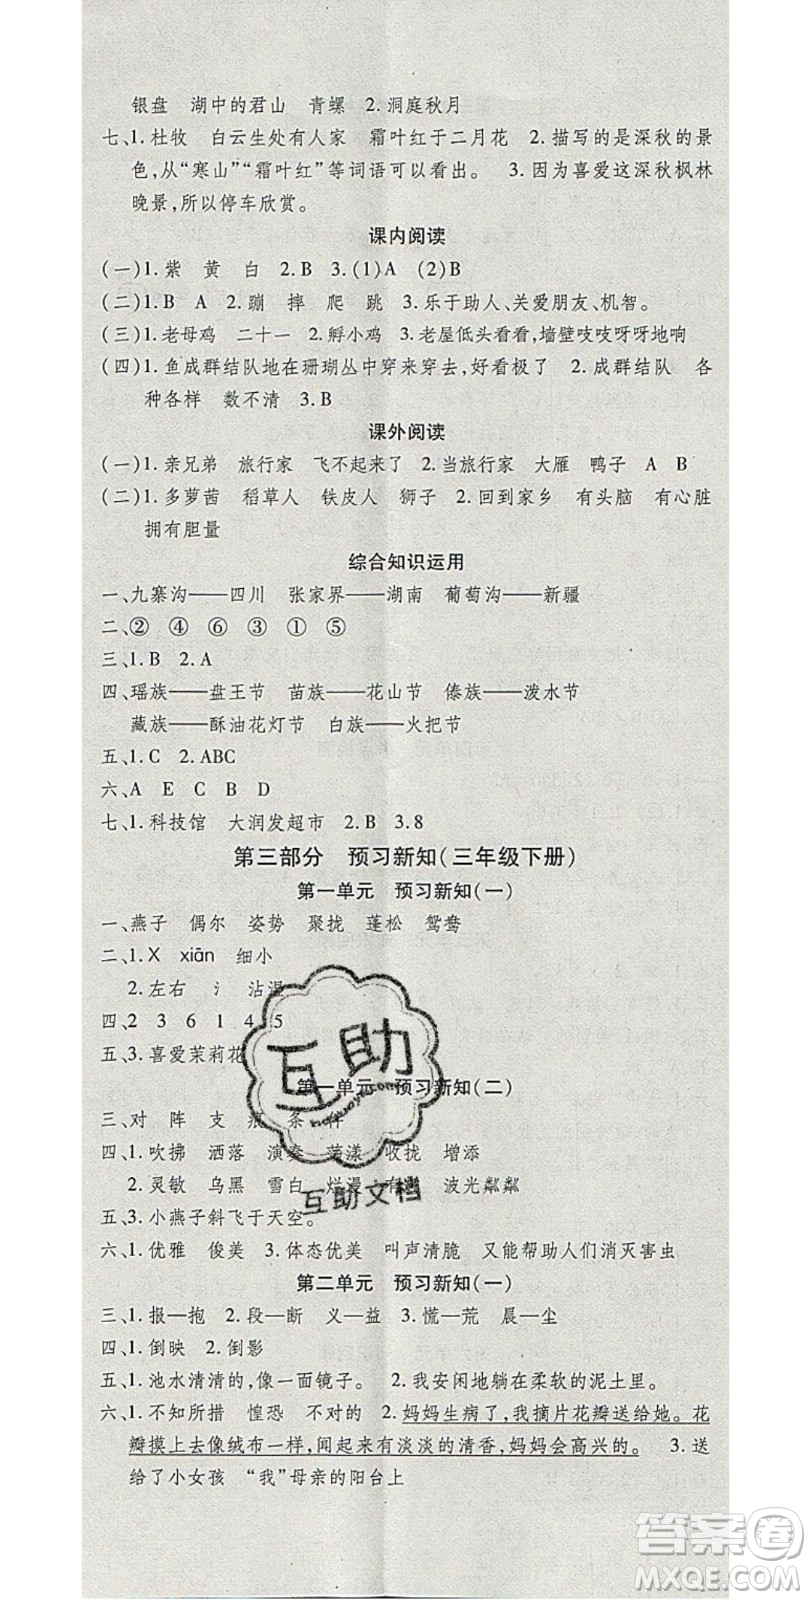 银盘 湖中的君山 青螺 2.洞庭秋月
七、1.杜牧 白云生处有人家 霜叶红于二月花 2.描写的是深秋的景
色,从“寒山”“霜叶红”等词语可以看出。 3.因为喜爱这深秋枫林
晚景,所以停车欣赏。
课内阅读
(一)1.紫 黄 白 2.B 3.(1)A (2)B
(二)1.B A 2.蹦 摔 爬 跳 3.乐于助人、关爱朋友、机智。
(三)1.老母鸡 二十一 2.孵小鸡 3.老屋低头看看,墙壁吱吱呀呀地响
(四)1.鱼成群结队地在珊瑚丛中穿来穿去,好看极了 2.成群结队 各
种各样 数不清 3.B
课外阅读
(一)1.亲兄弟 旅行家 飞不起来了 2.当旅行家 大雁 鸭子 A B
(二)1.多萝茜 稻草人 铁皮人 狮子 2.回到家乡 有头脑 有心脏
拥有胆量
综合知识运用
一、九寨沟——四川 张家界——湖南 葡萄沟——新疆
二、② ④ ⑥ ③ ① ⑤
三、1.B 2.A
四、瑶族——盘王节 苗族——花山节 傣族——泼水节
藏族——酥油花灯节 白族——火把节
五、1.C 2.ABC
六、A E C B D
七、1.科技馆 大润发超市 2.B 3.8
第三部分 预习新知(三年级下册)
第一单元 预习新知(一)
一、燕子 偶尔 姿势 聚拢 蓬松 鸳鸯
二、1.X xiān 细小
2.左右 氵 沾湿
四、2 3 6 1 4 5
五、3.喜爱茉莉花
第一单元 预习新知(二)
三、对 阵 支 瓶 条 样
四、1.吹拂 洒落 演奏 荡漾 收拢 增添
2.灵敏 乌黑 雪白 烂漫 有趣 波光粼粼
五、3.小燕子斜飞于天空。
六、1.优雅 俊美 3.体态优美 叫声清脆 又能帮助人们消灭害虫
第二单元 预习新知(一)
三、1.报—抱 2.段—断 义—益 3.慌—荒 晨—尘
四、1.倒映 2.倒影
五、1.池水清清的,像一面镜子。 2.我安闲地躺在柔软的泥土里。
六、1.不知所措 惶恐 不对的 2.妈妈生病了,我摘片花瓣送给她。花
瓣摸上去像绒布一样,闻起来有淡淡的清香,妈妈会高兴的。 3.送
给了小女孩 “我”母亲的阳台上
互助
互助文档
答案圈
MXQE.COM